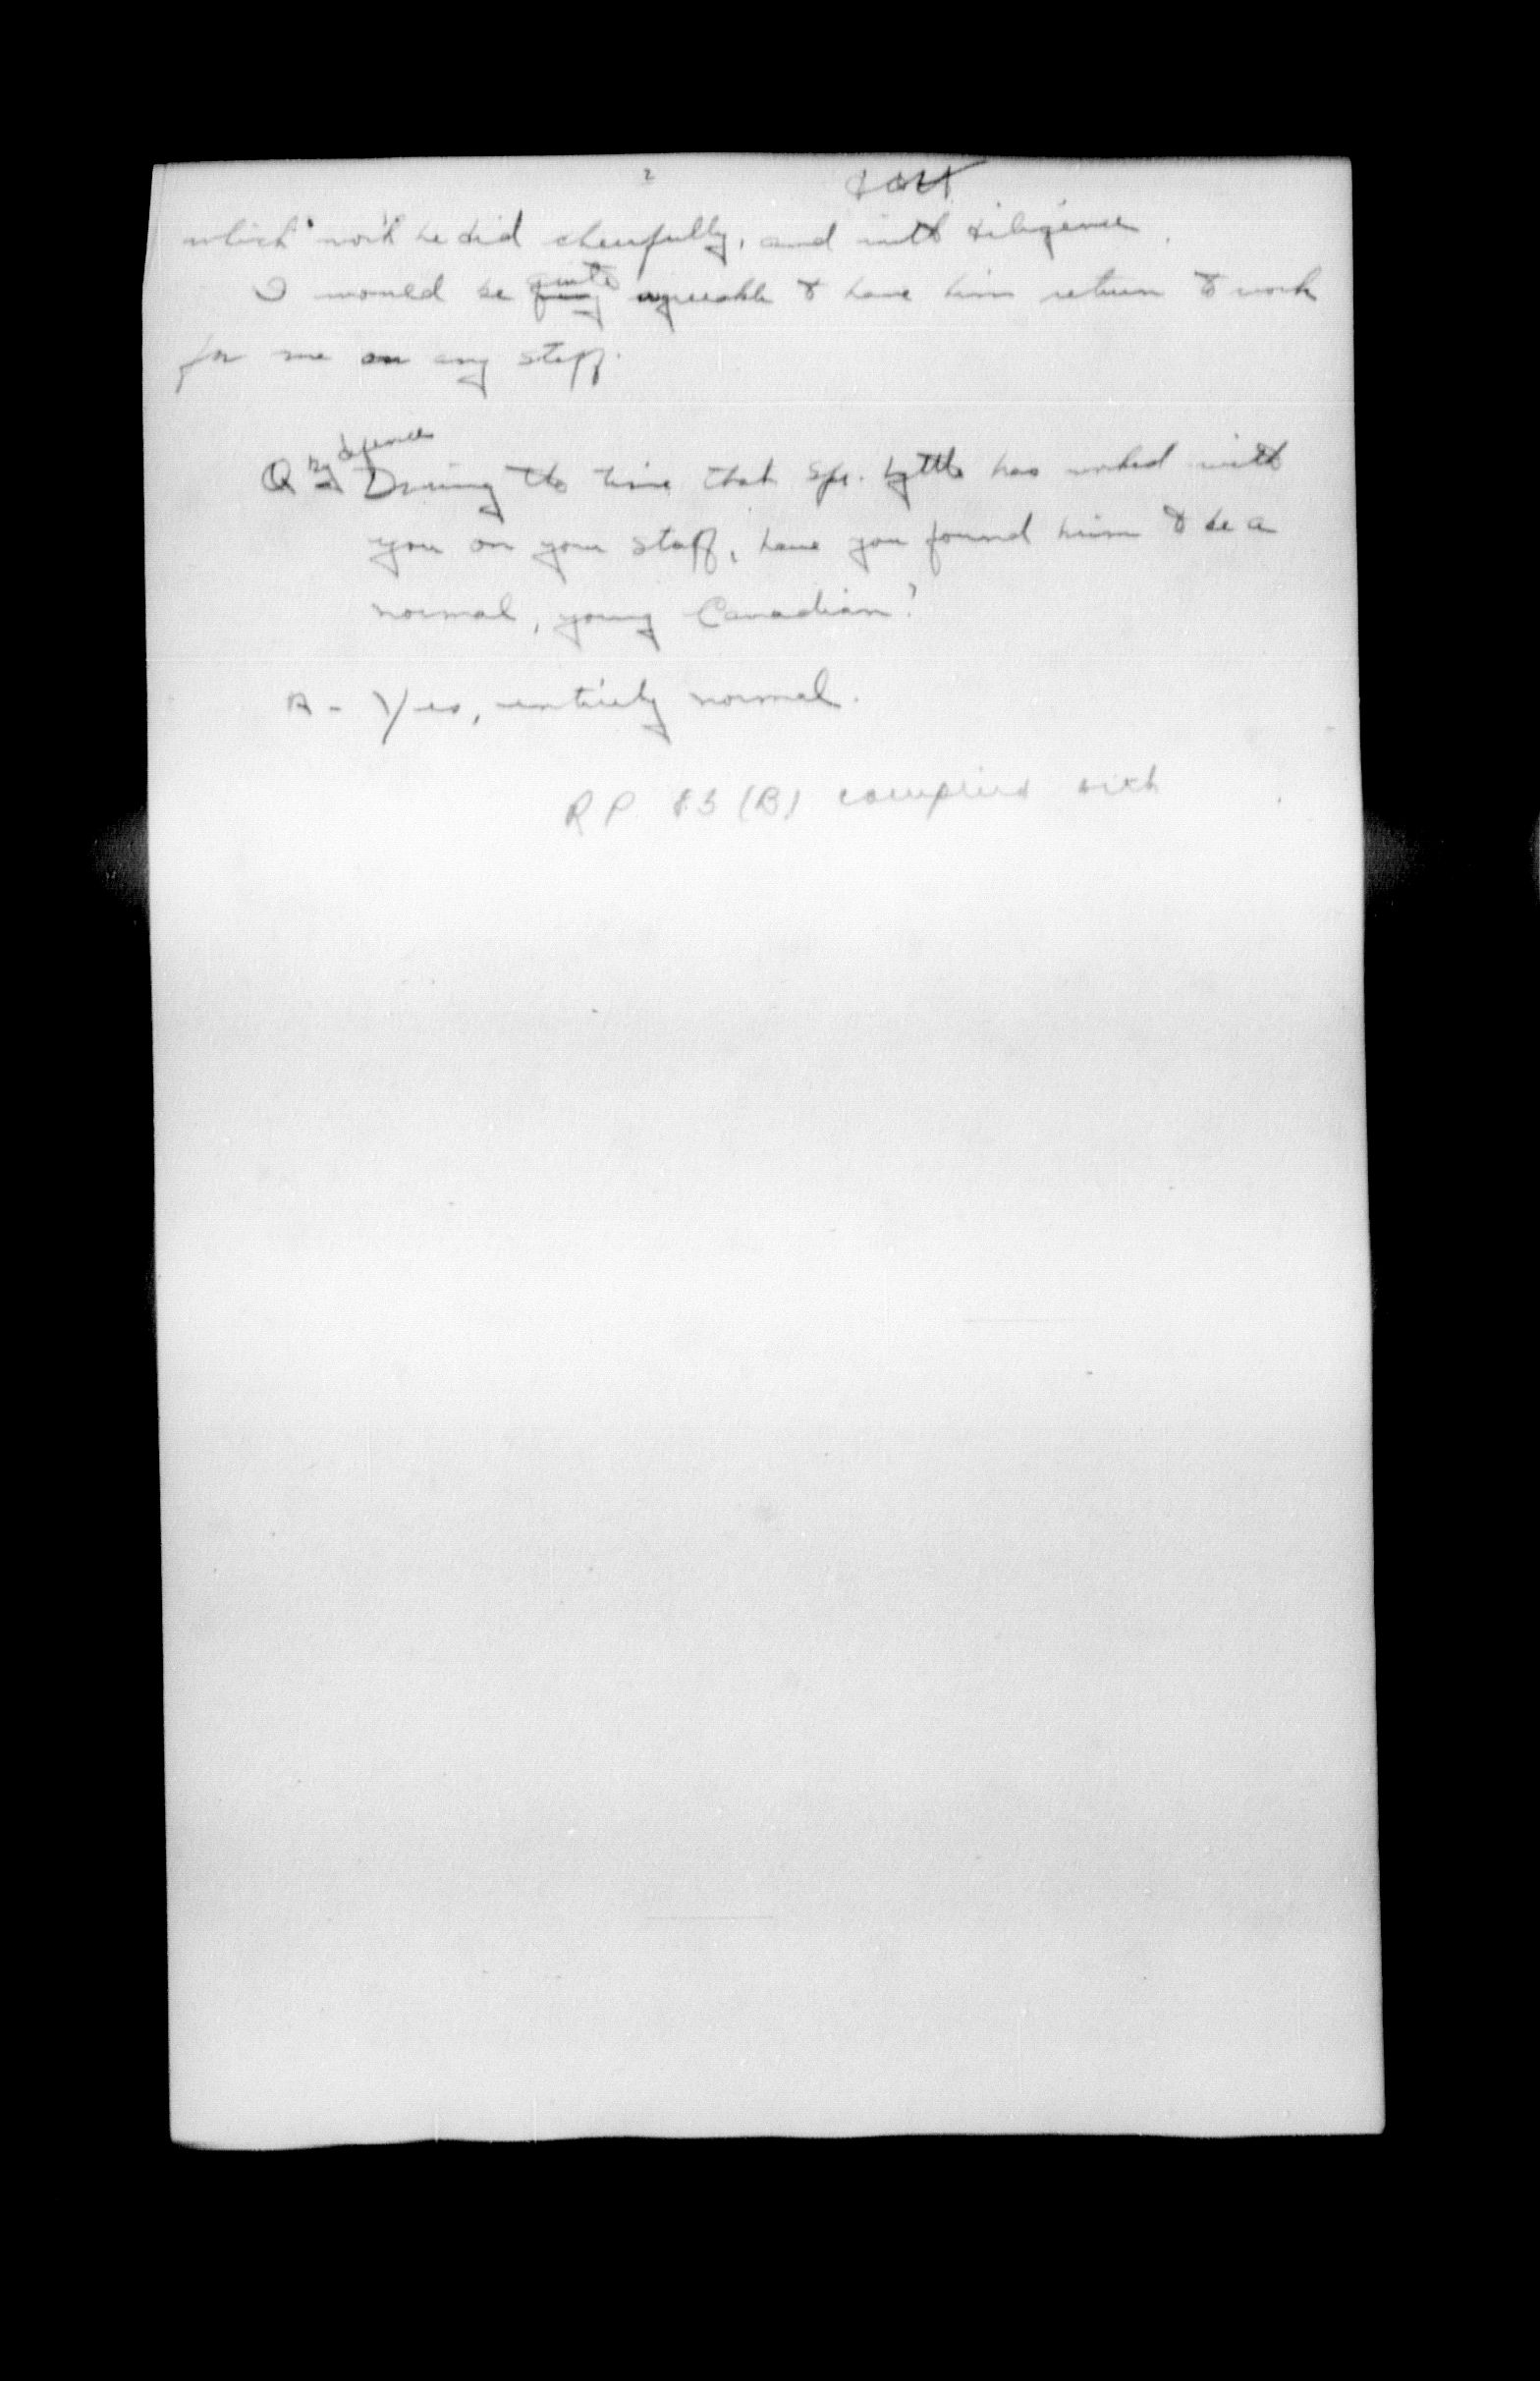 2
which work he did cheerfully, and with diligence.
I would be quite agreeable to have him return to work
for me on any staff.
by defence
Q During the time that Spr. Lyttle has worked with
you on your staff, have you found him to be a
normal, young Canadian?
A - Yes, entirely normal.
RP 83 (B) complied with